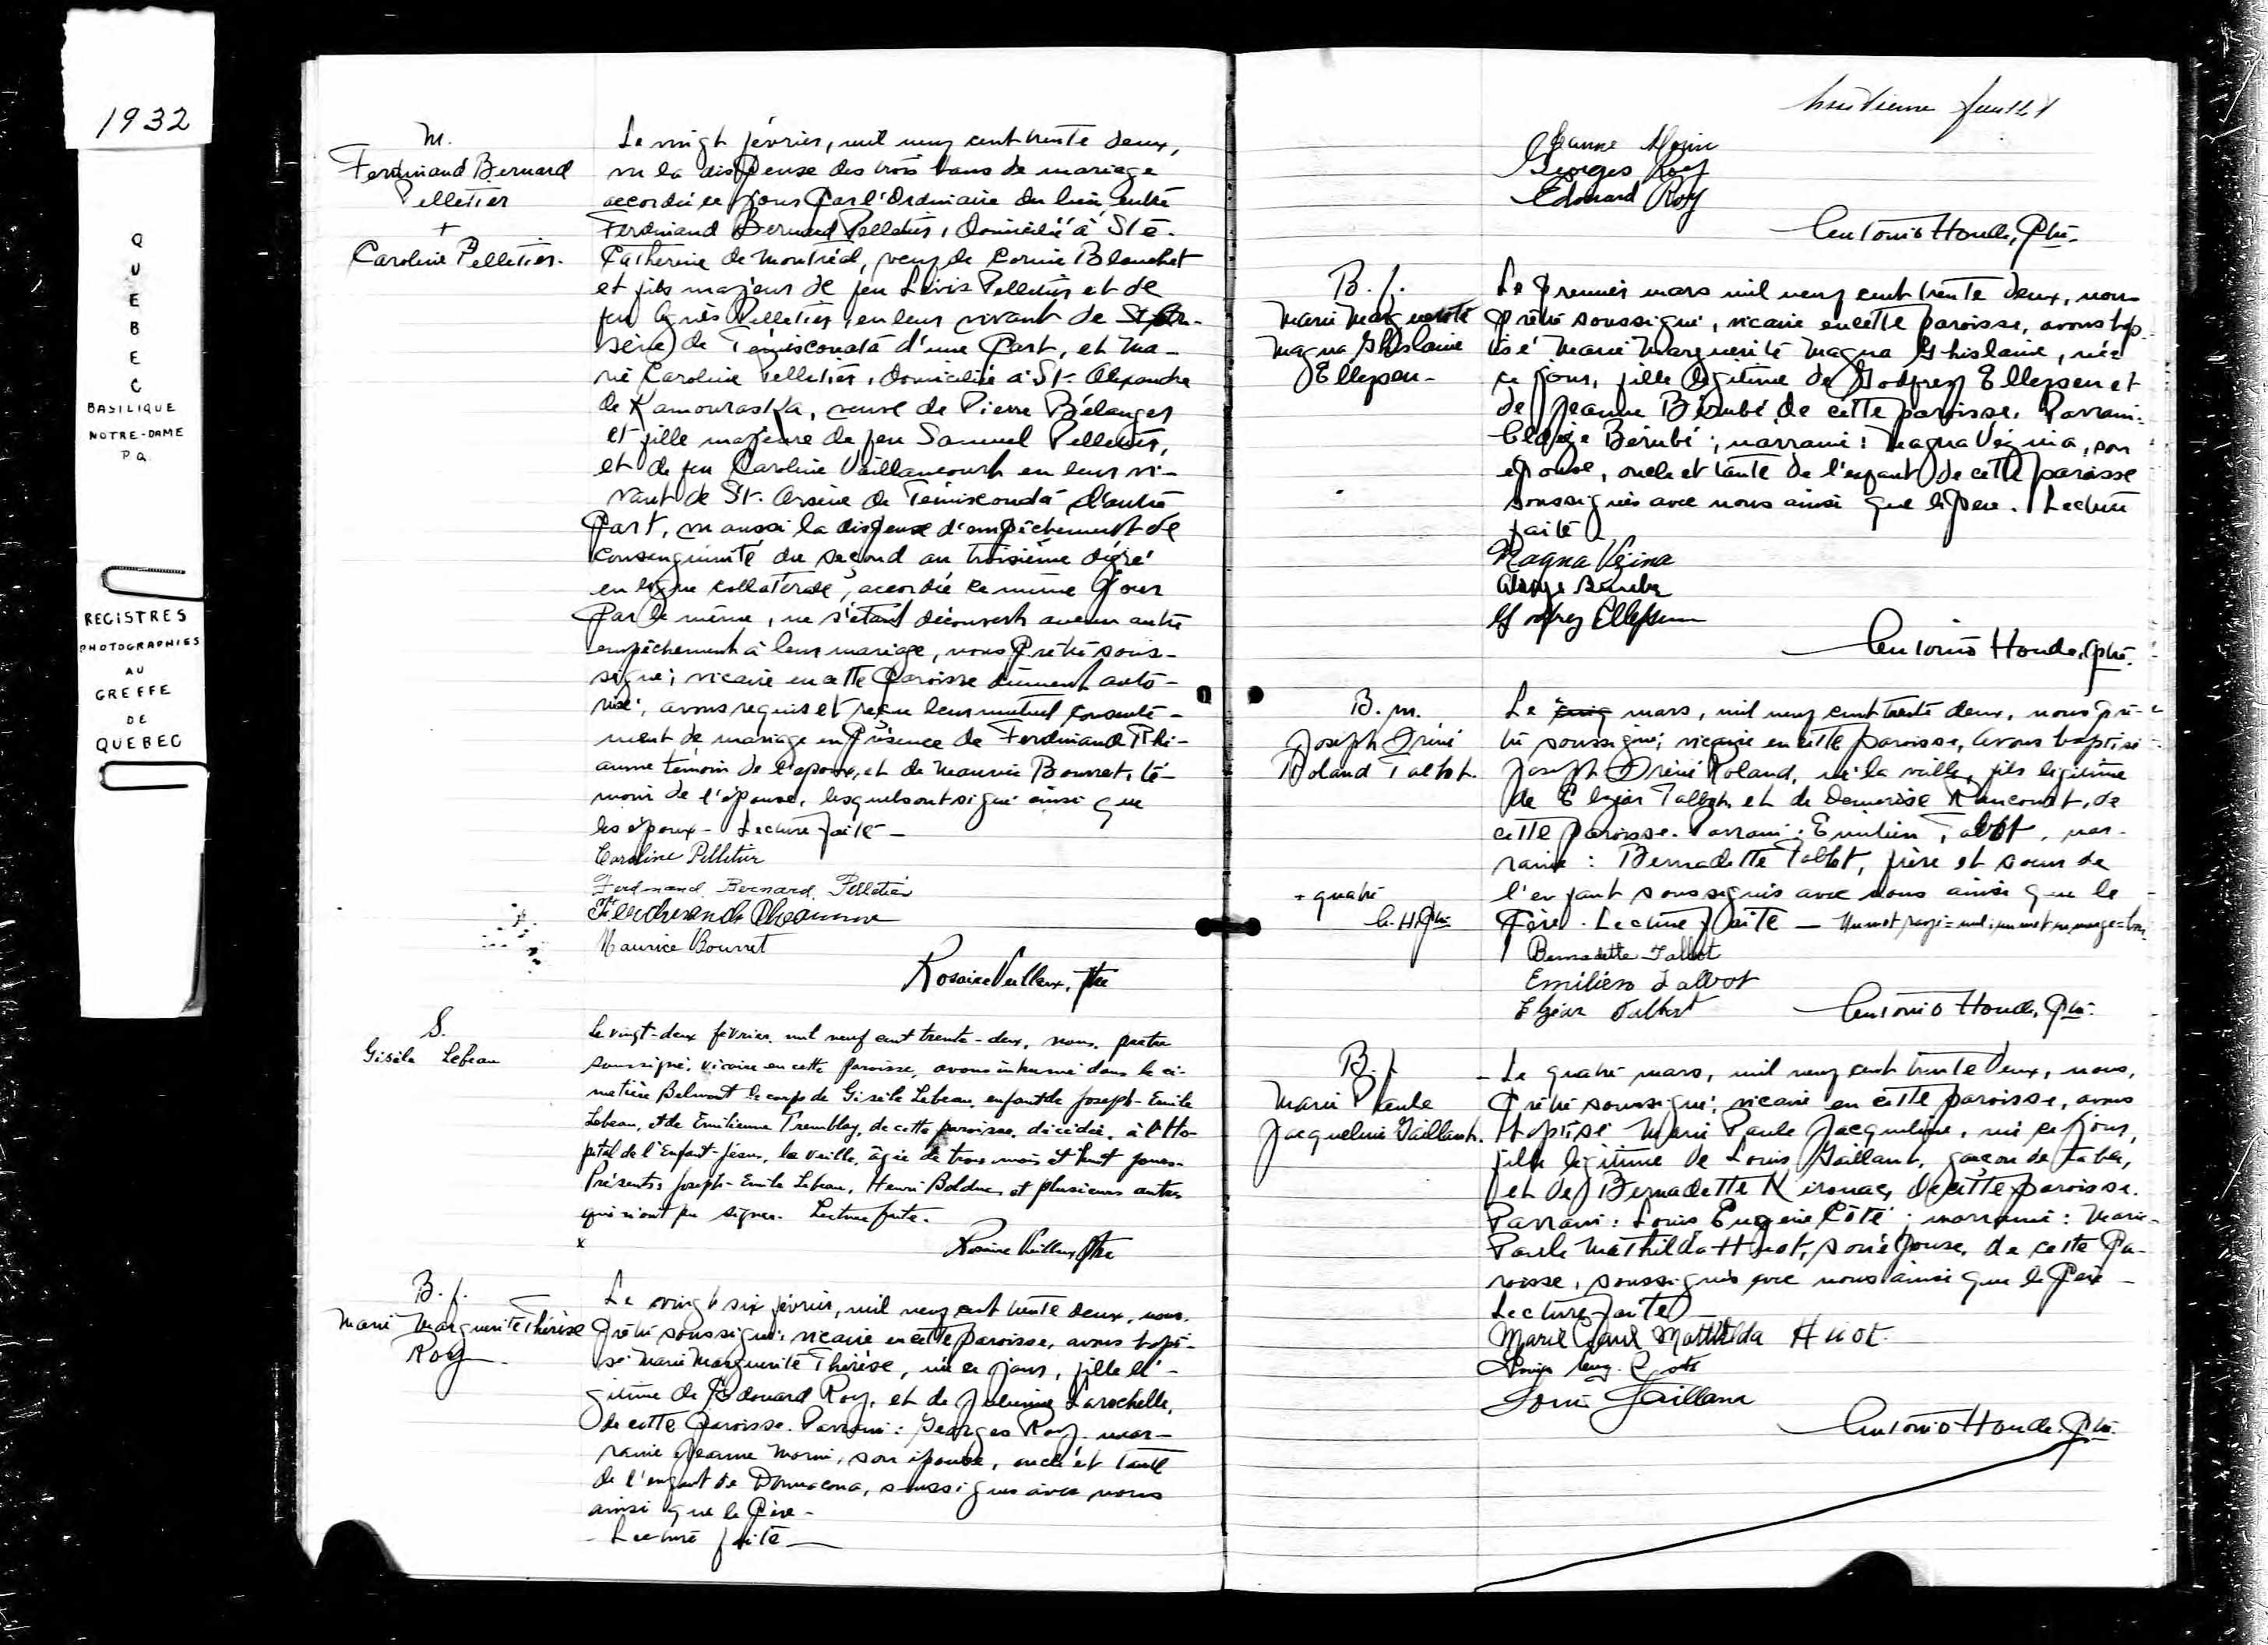 1932
QUEBEC
BASILIQUE
NOTRE-DAME
P.Q.
REGISTRES
PHOTOGRAPHIES
AU
GREFFE
DE
QUEBEC
M.
Ferdinand Bernard
Pelletier
+
Caroline Pelletier.
Le vingt février, mil neuf cent trente deux,
vu la dispense des trois bans de mariage
accordée ce jour par l'Ordinaire du lieu entre
Ferdinand Bernard Pelletier, domicilié à Ste.
Catherine de Montréal, veuf de Corinne Blanchet
et fils majeur de feu Lévis Pelletier et de
feu Agnès Pelletier, en leur vivant de St Ar-
sène de Témiscouata d'une part, et Ma-
rie Caroline Pelletier, domiciliée à St. Alexandre
de Kamouraska, veuve de Pierre Bélanger
et fille majeure de feu Samuel Pelletier,
et de feu Caroline Vaillancourt en leur vi-
vant de St. Arsène de Témiscouata d'autre
part, vu aussi la dispense d'empêchement de
consanguinité du second au troisième degré
en ligne collatérale, accordée le même jour
par le même, ne s'étant découvert aucun autre
empêchement à leur mariage, nous prêtre sous-
signé, vicaire en cette paroisse dûment auto-
risé, avons requis et reçu leur mutuel consente-
ment de mariage en présence de Ferdinand Rhé-
aume témoin de l'époux, et de Maurice Bourret, té-
moin de l'épouse, lesquels ont signé ainsi que
les époux - Lecture faite -
Caroline Pelletier
Ferdinand Bernard Pelletier
Ferdinand Rheaume
Maurice Bourret
Rosaire Veilleux, ptre
S.
Gisèle Lebeau
Le vingt-deux février, mil neuf cent trente-deux, nous, prêtre
soussigné, vicaire en cette paroisse, avons inhumé dans le ci-
metière Belmont le corps de Gisèle Lebeau, enfant de Joseph-Emile
Lebeau, et de Emilienne Tremblay, de cette paroisse, décédée, à l'Hô-
pital de l'Enfant-Jésus, la veille, âgée de trois mois et huit jours.
Présents: Joseph-Emile Lebeau, Henri Bolduc, et plusieurs autres
qui n'ont pu signer. Lecture faite.
x
Rosaire Veilleux ptre
B. f.
Marie Marguerite Thérèse
Roy
Le vingt six février, mil neuf cent trente deux, nous
prêtre soussigné, vicaire en cette paroisse, avons bapti-
sé Marie Marguerite Thérèse, née ce jour, fille lé-
gitime de Edouard Roy, et de Larochelle,
de cette paroisse. Parrain: Georges Roy. mar-
raine Jeanne Morin, son épouse, oncle et tante
de l'enfant de Donnacona, soussignés avec nous
ainsi que le père -
- Lecture faite -
huitième feuillet
Jeanne Morin
Georges Roy
Edouard Roy
Antonio Houde, ptre.
B. f.
Marie Marguerite
Magna Ghislaine
Ellepsen -
Le premier mars mil neuf cent trente deux, nous
prêtre soussigné, vicaire en cette paroisse, avons bap-
tisé Marie Marguerite Magna Ghislaine, née
ce jour, fille légitime de Godfrey Ellepsen et
de Jeanne Bérubé de cette paroisse. Parrain:
Bérubé; marraine: Magna Vézina, son
épouse, oncle et tante de l'enfant de cette paroisse
soussignés avec nous ainsi que le père. Lecture
faite
Magna Vézina
Bérubé
Godfrey Ellepsen
Antonio Houde, ptre.
B. m.
Joseph Iréné
Roland Talbot.
Le cinq mars, mil neuf cent trente deux, nous prê-
tre soussigné, vicaire en cette paroisse, avons baptisé
Joseph Iréné Roland, né la veille, fils légitime
de Elzéar Talbot et de Démerise Rancourt, de
cette paroisse. Parrain: Emilien Talbot, mar-
raine: Bernadette Talbot, frère et soeur de
l'enfant soussignés avec nous ainsi que le
père. Lecture faite - Un mot rayé = nul, un mot en marge = bon
+ quatre
A. H. ptre
Bernadette Talbot
Emilien Talbot
Elzéar Talbot
Antonio Houde, ptre.
B. f.
Marie Paule
Jacqueline Gaillant.
- Le quatre mars, mil neuf cent trente deux, nous,
prêtre soussigné, vicaire en cette paroisse, avons
baptisé Marie Paule Jacqueline, née ce jour,
fille légitime de Louis Gaillant, garçon de table,
et de Bernadette Kirouac, de cette paroisse.
Parrain: Louis Eugène Côté; marraine: Marie-
Paule Mathilda Huot, son épouse, de cette pa-
roisse, soussignés avec nous ainsi que le père -
Lecture faite
Marie Paul Mathilda Huot.
Louis Eug. Coté
Louis Gaillant
Antonio Houde, ptre.